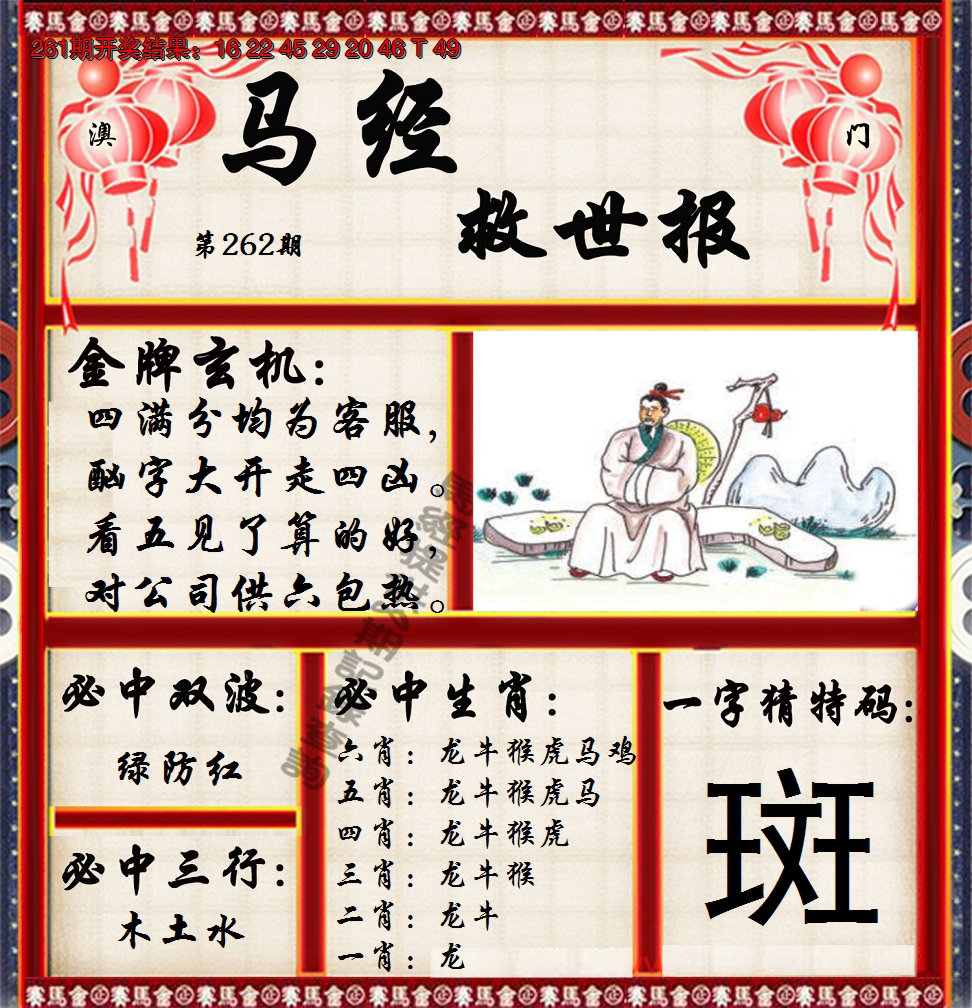 261期开奖结果：16 22 45 29 20 46 T 49
澳
门
马经
救世报
第262期
金牌玄机：
四满分均为客服，
酗字大开走四凶。
看五见了算的好，
对公司供六包热。
必中双波：
绿防红
必中三行：
木土水
必中生肖：
六肖：龙牛猴虎马鸡
五肖：龙牛猴虎马
四肖：龙牛猴虎
三肖：龙牛猴
二肖：龙牛
一肖：龙
一字猜特码：
斑